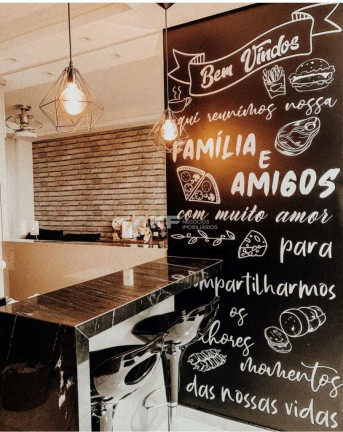 Bem Vindos
aqui reunimos nossa
FAMÍLIA E
AMIGOS
com muito amor
para
compartilharmos
os
melhores
momentos
das nossas vidas
NEGÓCIOS
IMOBILIÁRIOS